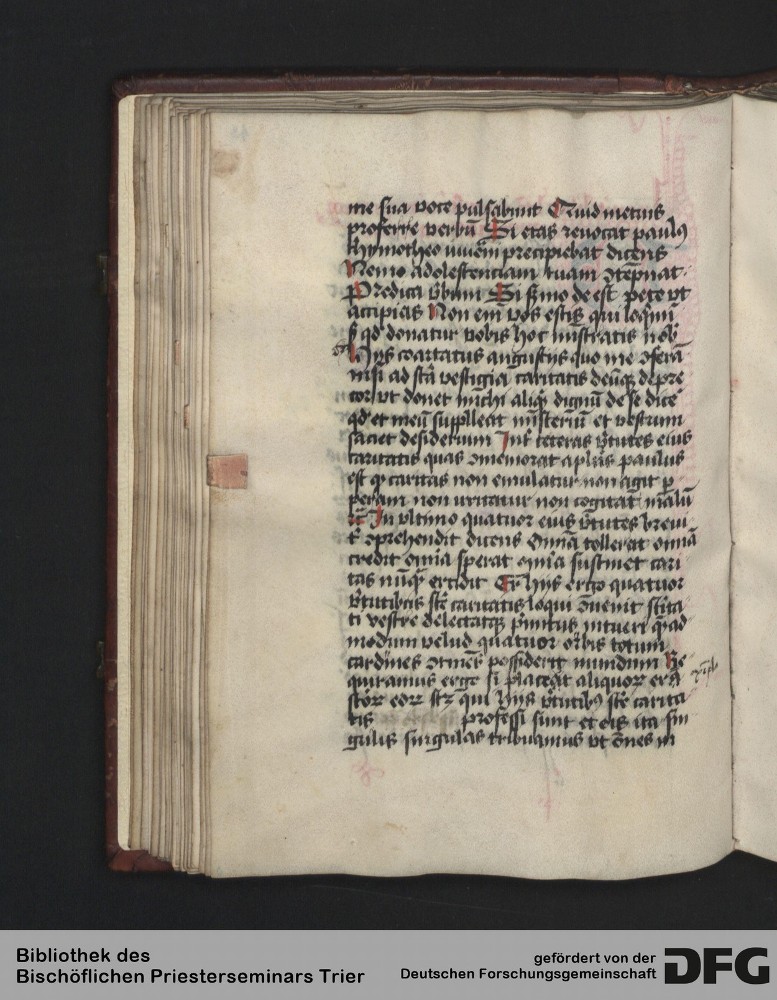 me sua voce pulsabunt Quid metuis
proferre verbū Si etas revocat paulꝰ
thymotheo iuvēi precipiebat dicens
Nemo adolestentiam tuam ↄtēpnat
Predica v̓bum Si s̓mo deest pete vt
accipias Non em̄ vos estis qui loq̓mī
s̓ qd̓ donatur vobis hoc mīstratis nob̓
Hijs coartatus angustijs quo me ↄferā
nisi ad stā vestigia caritatis deūqꝫ depre
cor vt donet michi aliqd̓ dignū de se dice̓
qd̓ et meū suppleat mīsteriū et vestrum
saciet desiderium Int̓ ceteras v̓tutes eius
caritatis quas ↄmemorat apl̓us paulus
est qꝫ caritas non emulatur non agit ꝑ
peram non irritatur non cogitat malū
⁊c̄ In vltimo quatuor eius v̓tutes brevi
t̓ ↄprehendit dicens Omīa tollerat omīa
credit omīa sperat omīa sustinet cari
tas nūqꝫ excidit Ex hijs ergo quatuor
v̓tutibus stē caritatis loqui ↄuenit stīta
ti vestre delectatqꝫ p̓nitus intueri q̓ad
modum velud quatuor orbis totum
cardines ↄtinēs possiderit mundum Re
quiramus ergo si placeat aliquoꝝ exā
stōꝝ eoꝝ scꝫ qui hijs v̓tutibꝰ stē carita
tis professi sunt et eis ita sin
gulis singulas tribuamus vt ōnes in
Bibliothek des
Bischöflichen Priesterseminars Trier
gefördert von der
Deutschen Forschungsgemeinschaft
DFG